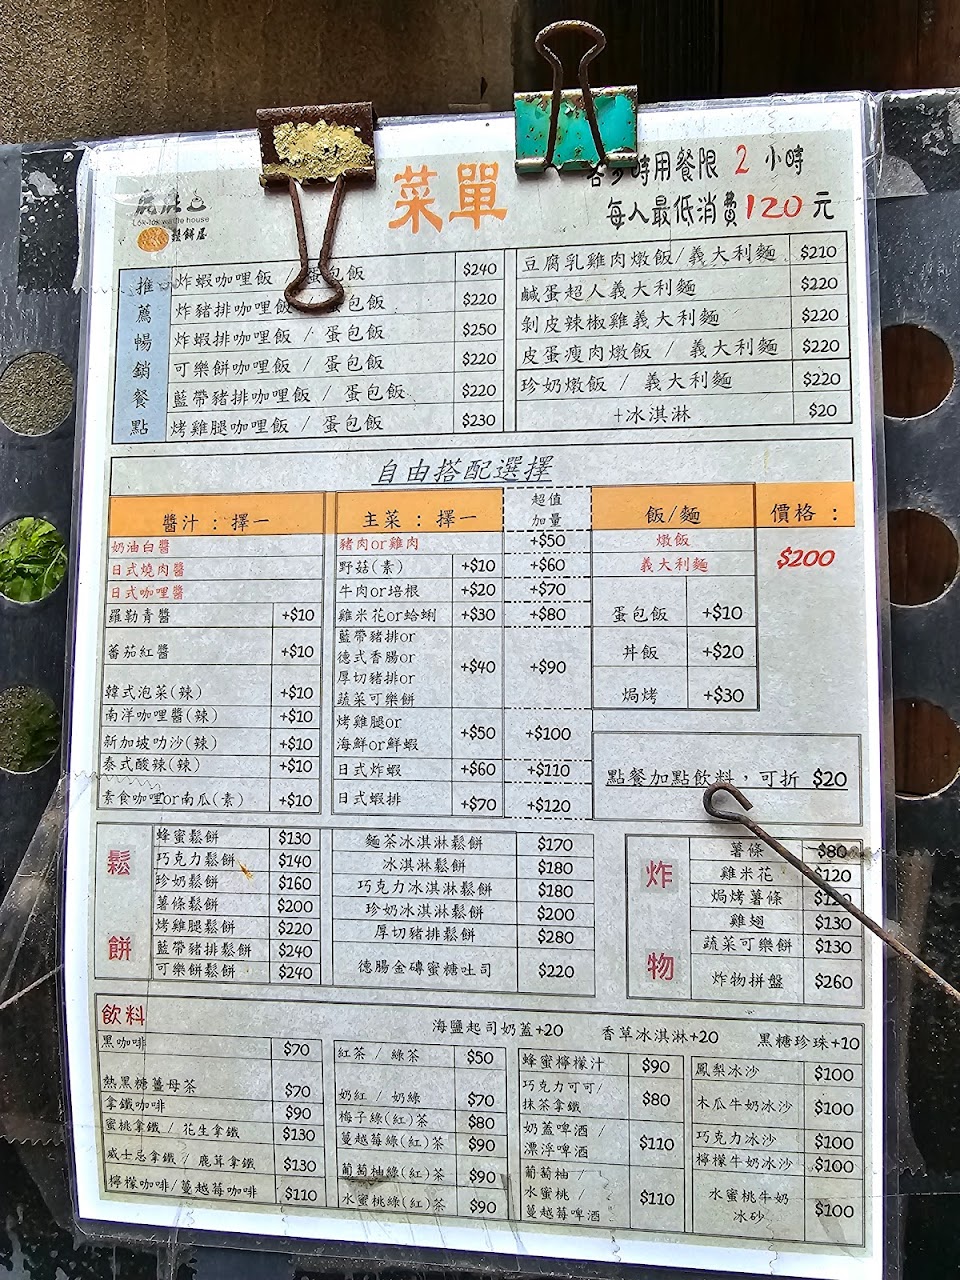 菜單
用餐限 2 小時
每人最低消費120元
waffle house
鬆餅屋
推薦暢銷餐點
炸蝦咖哩飯 / 蛋包飯 $240
炸豬排咖哩飯 蛋包飯 $220
炸蝦排咖哩飯 / 蛋包飯 $250
可樂餅咖哩飯 / 蛋包飯 $220
藍帶豬排咖哩飯 / 蛋包飯 $220
烤雞腿咖哩飯 / 蛋包飯 $230
豆腐乳雞肉燉飯/義大利麵 $210
鹹蛋超人義大利麵 $220
剝皮辣椒雞義大利麵 $220
皮蛋瘦肉燉飯 / 義大利麵 $220
珍奶燉飯 / 義大利麵 $220
+冰淇淋 $20
自由搭配選擇
醬汁 : 擇一
奶油白醬
日式燒肉醬
日式咖哩醬
羅勒青醬 +$10
蕃茄紅醬 +$10
韓式泡菜(辣) +$10
南洋咖哩醬(辣) +$10
新加坡叻沙(辣) +$10
泰式酸辣(辣) +$10
素食咖哩or南瓜(素) +$10
主菜 : 擇一 超值加量
豬肉or雞肉 +$50
野菇(素) +$10 +$60
牛肉or培根 +$20 +$70
雞米花or蛤蜊 +$30 +$80
藍帶豬排or
德式香腸or
厚切豬排or
蔬菜可樂餅 +$40 +$90
烤雞腿or
海鮮or鮮蝦 +$50 +$100
日式炸蝦 +$60 +$110
日式蝦排 +$70 +$120
飯/麵
燉飯
義大利麵
蛋包飯 +$10
丼飯 +$20
焗烤 +$30
價格 :
$200
點餐加點飲料，可折 $20
鬆餅
蜂蜜鬆餅 $130
巧克力鬆餅 $140
珍奶鬆餅 $160
薯條鬆餅 $200
烤雞腿鬆餅 $220
藍帶豬排鬆餅 $240
可樂餅鬆餅 $240
麵茶冰淇淋鬆餅 $170
冰淇淋鬆餅 $180
巧克力冰淇淋鬆餅 $180
珍奶冰淇淋鬆餅 $200
厚切豬排鬆餅 $280
德腸金磚蜜糖吐司 $220
炸物
薯條 $80
雞米花 $120
焗烤薯條
雞翅 $130
蔬菜可樂餅 $130
炸物拼盤 $260
飲料
海鹽起司奶蓋+20 香草冰淇淋+20 黑糖珍珠+10
黑咖啡 $70
熱黑糖薑母茶 $70
拿鐵咖啡 $90
蜜桃拿鐵 / 花生拿鐵 $130
威士忌拿鐵 / 鹿茸拿鐵 $130
檸檬咖啡/蔓越莓咖啡 $110
紅茶 / 綠茶 $50
奶紅 / 奶綠 $70
梅子綠(紅)茶 $80
蔓越莓綠(紅)茶 $90
葡萄柚綠(紅)茶 $90
水蜜桃綠(紅)茶 $90
蜂蜜檸檬汁 $90
巧克力可可/
抹茶拿鐵 $80
奶蓋啤酒 /
漂浮啤酒 $110
葡萄柚 /
水蜜桃 /
蔓越莓啤酒 $110
鳳梨冰沙 $100
木瓜牛奶冰沙 $100
巧克力冰沙 $100
檸檬牛奶冰沙 $100
水蜜桃牛奶
冰砂 $100